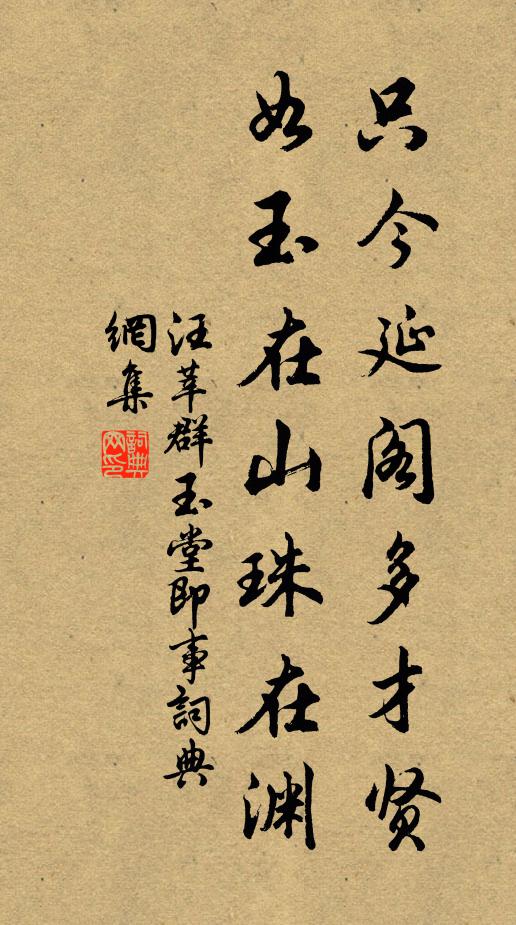 只今延阁多才贤
如玉在山珠在渊
汪莘群玉堂即事詞典
網集
詞典網印